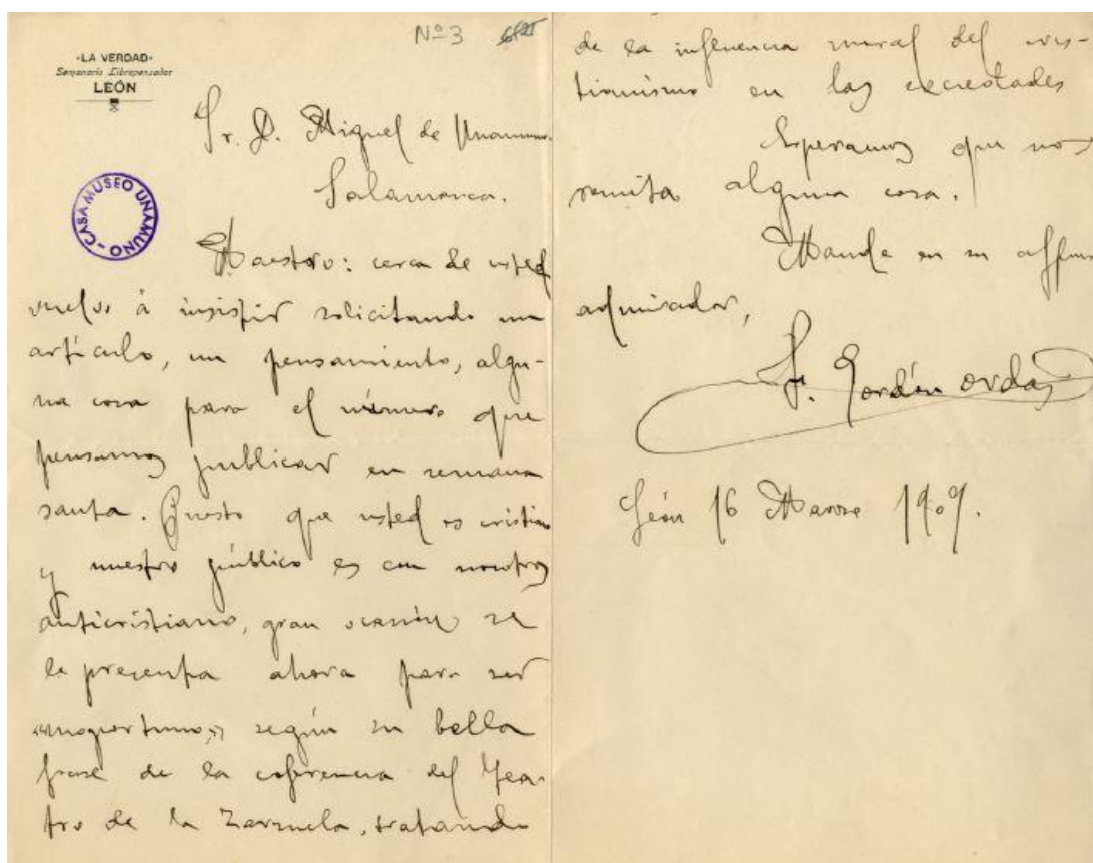 Nº 3
-LA VERDAD-
Semanario Librepensador
LEÓN
Sr. D. Miguel de Unamuno.
Salamanca.
CASA MUSEO UNAMUNO
Maestro: cerca de usted
vuelvo á insistir solicitando un
artículo, un pensamiento, algu-
na cosa para el número que
pensamos publicar en semana
santa. Puesto que usted es cristiano
y nuestro público es con nosotros
anticristiano, gran ocasión se
le presenta ahora para ser
"inoportuno", según su bella
frase de la coferencia del Tea-
tro de la Zarzuela, tratando
de la influencia moral del cris-
tianismo en las
Esperamos que nos
remita alguna cosa.
Mande en su affmo
admirador,
F. Gordón Ordás
León 16 Marzo 1909.